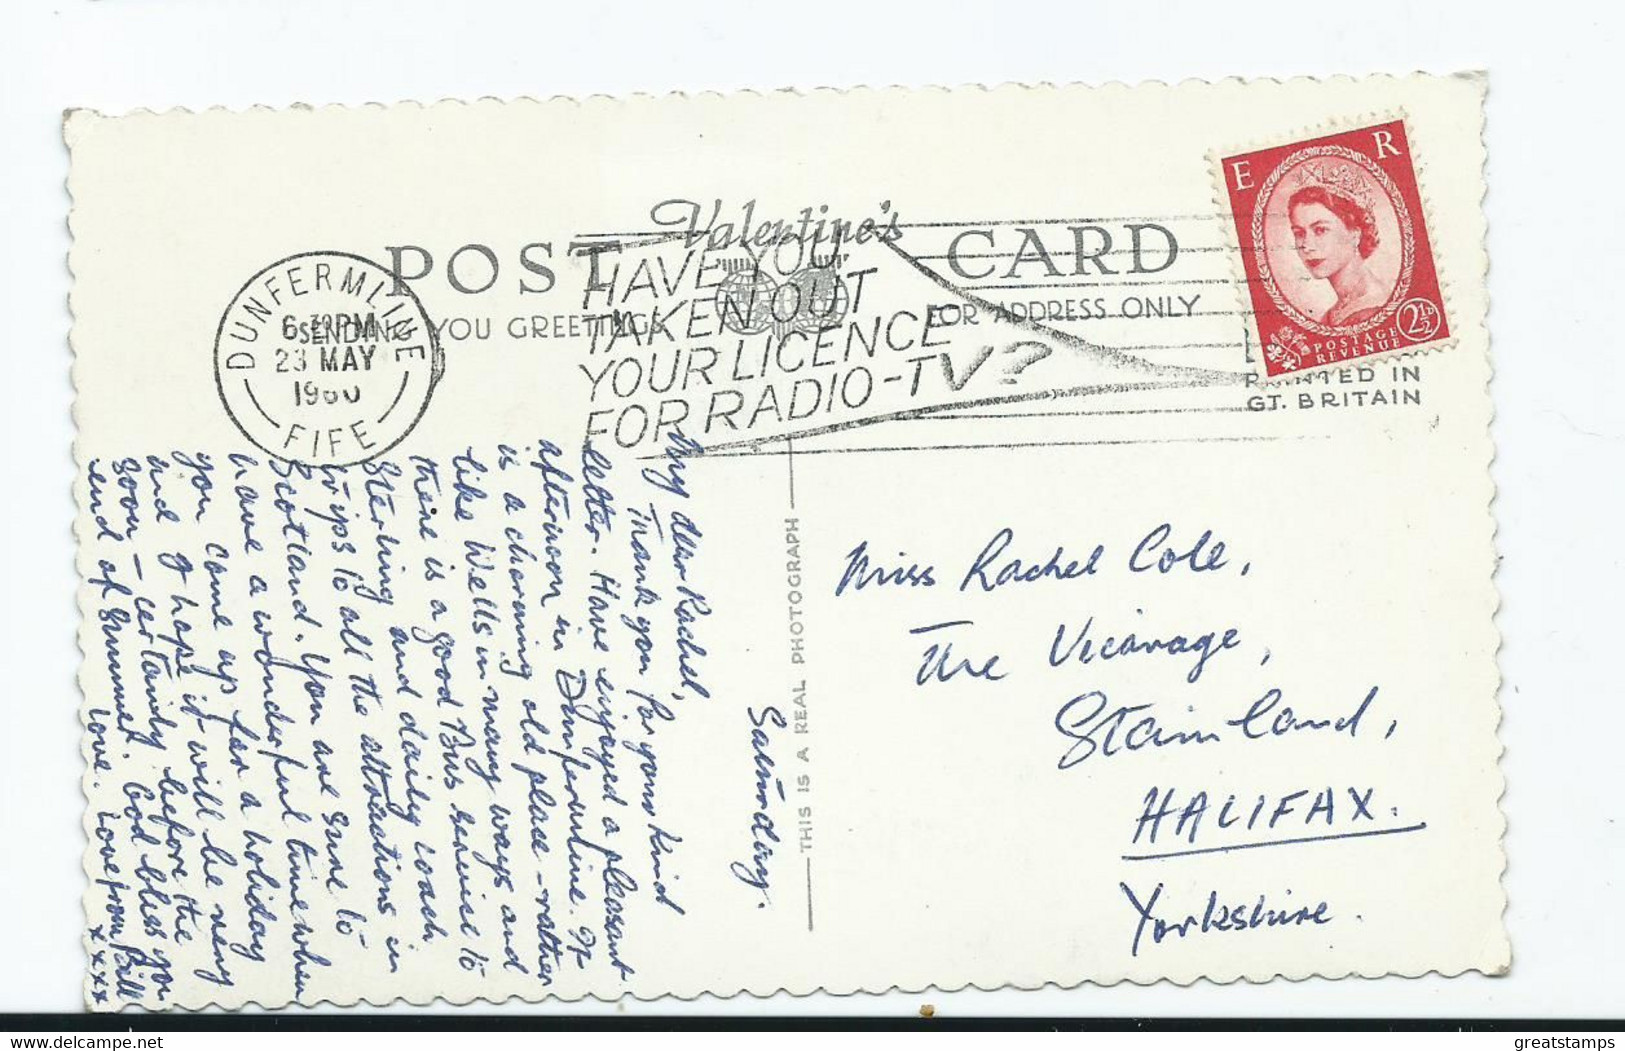 POST Valentine's CARD
SENDING YOU GREETINGS
FOR ADDRESS ONLY
DUNFERMLINE
6 30 PM
23 MAY
1960
FIFE
HAVE YOU
TAKEN OUT
YOUR LICENCE
FOR RADIO-TV?
E R
POSTAGE
REVENUE
2½D
PRINTED IN
GT. BRITAIN
THIS IS A REAL PHOTOGRAPH
Saturday.
My dear Rachel,
Thank you for your kind
letter. Have enjoyed a pleasant
afternoon in Dunfermline. It
is a charming old place - rather
like Wells in many ways and
there is a good Bus service to
Sterling and daily coach
trips to all the attractions in
Scotland. You are sure to
have a wonderful time when
you come up for a holiday
and I hope it will be very
soon - certainly before the
end of Summer. God bless you
love. Love from Bill
xxxx
Miss Rachel Cole,
The Vicarage,
Stainland,
HALIFAX.
Yorkshire.
greatstamps